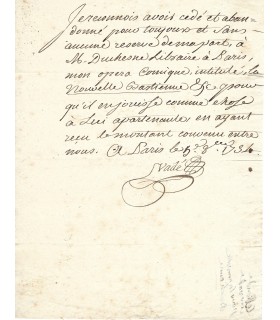 Je reconnois avoir cédé et aban-
donné pour toujours et sans
aucune reserve de ma part, à
M. Duchesne Libraire à Paris,
mon opera Comique intitulé la
Nouvelle Bastienne &c pour
qu'il en jouisse comme chose
à Lui apartenante, en ayant
reçu le montant convenu entre
nous. A Paris le 8.bre 1754
Vadé